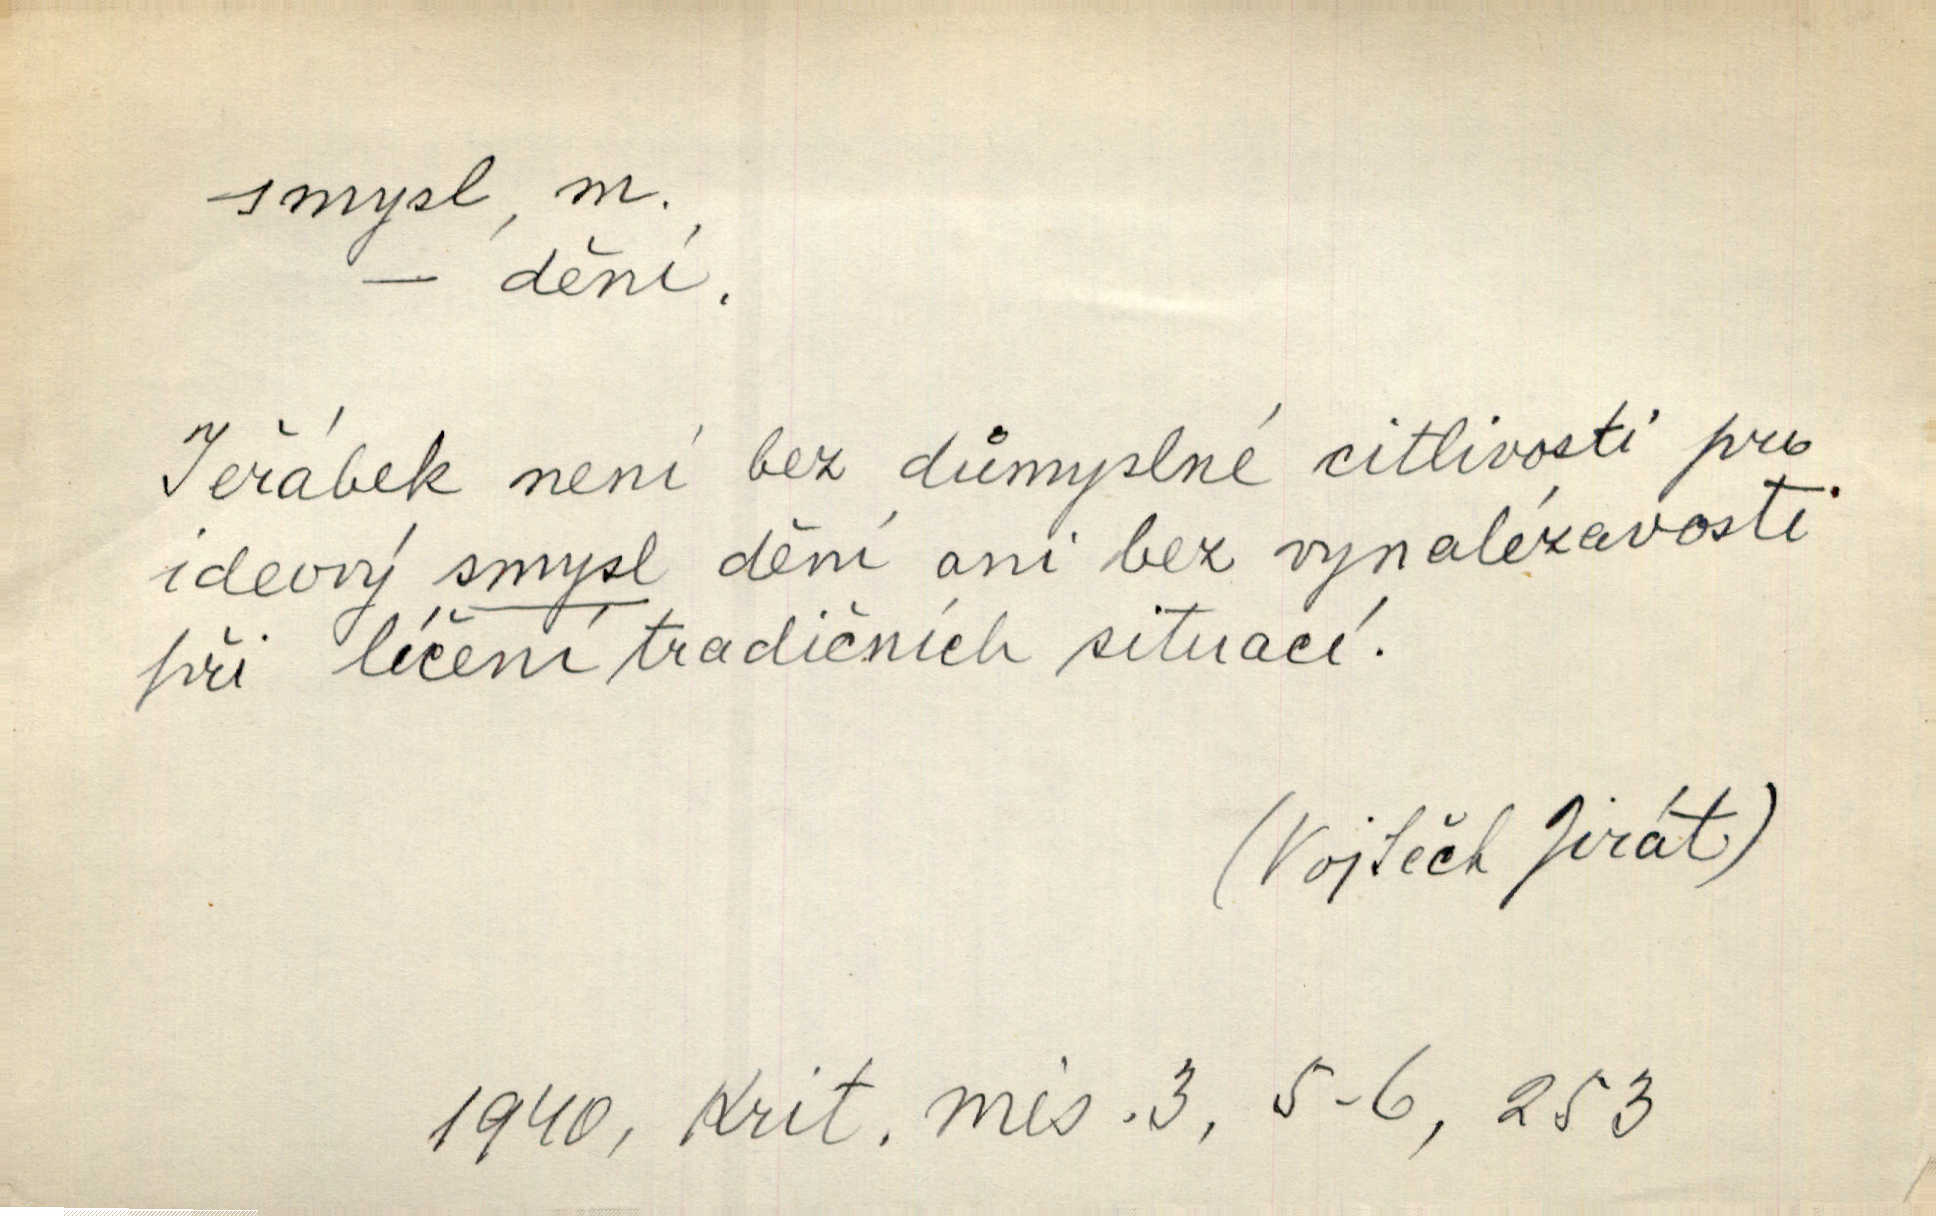 smysl, m.
— dění.
Jeřábek není bez důmyslné citlivosti pro
ideový smysl dění ani bez vynalézavosti
při líčení tradičních situací.
(Vojtěch Jirát)
1940, Krit. měs. 3, 5-6, 253